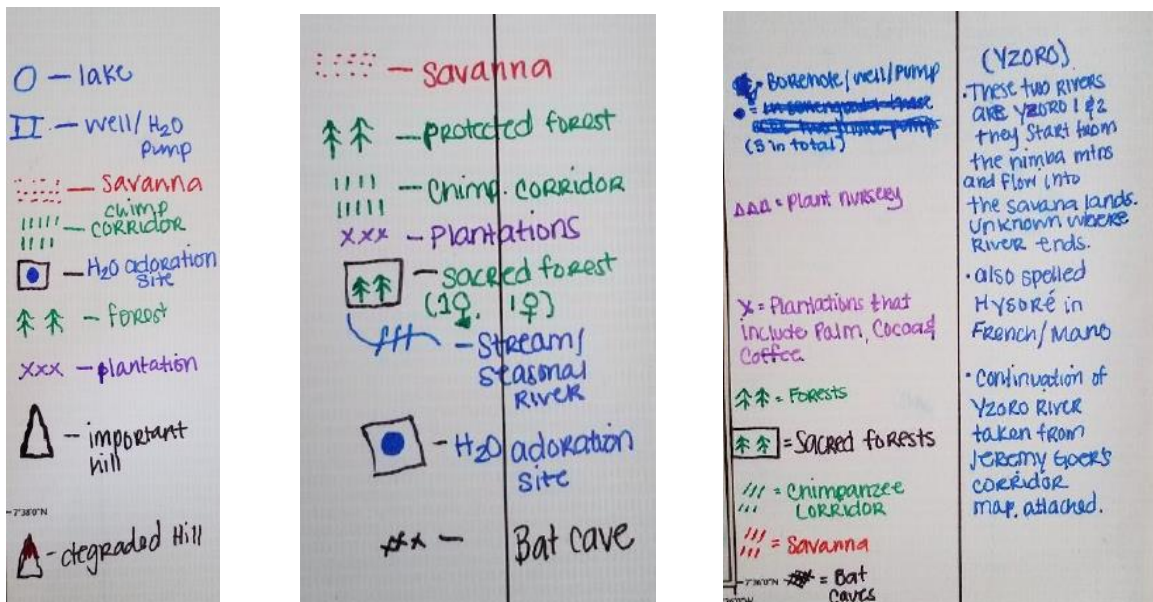 O – lake
II – well/H2O
pump
– savanna
chimp
– corridor
– H2O adoration
site
– forest
xxx – plantation
– important
hill
7°38'0"N
– degraded Hill
– savanna
– protected forest
– chimp. corridor
xxx – Plantations
– sacred forest
(1♀, 1♀)
– Stream/
seasonal
River
– H2O adoration
site
xxx – Bat cave
= Borehole/well/pump
(3 in total)
ΔΔΔ = Plant nursery
x = Plantations that
include Palm, Cocoa &
Coffee
= Forests
= Sacred forests
= Chimpanzee
Corridor
= Savanna
7°36'0"N = Bat
caves
(YZORO)
• These two rivers
are YZORO 1 & 2
they start from
the nimba mtns
and flow into
the savana lands.
Unknown where
River ends.
• also spelled
Hysoré in
French/Mano
• continuation of
YZORO River
taken from
Jeremy Goer's
corridor
map, attached.